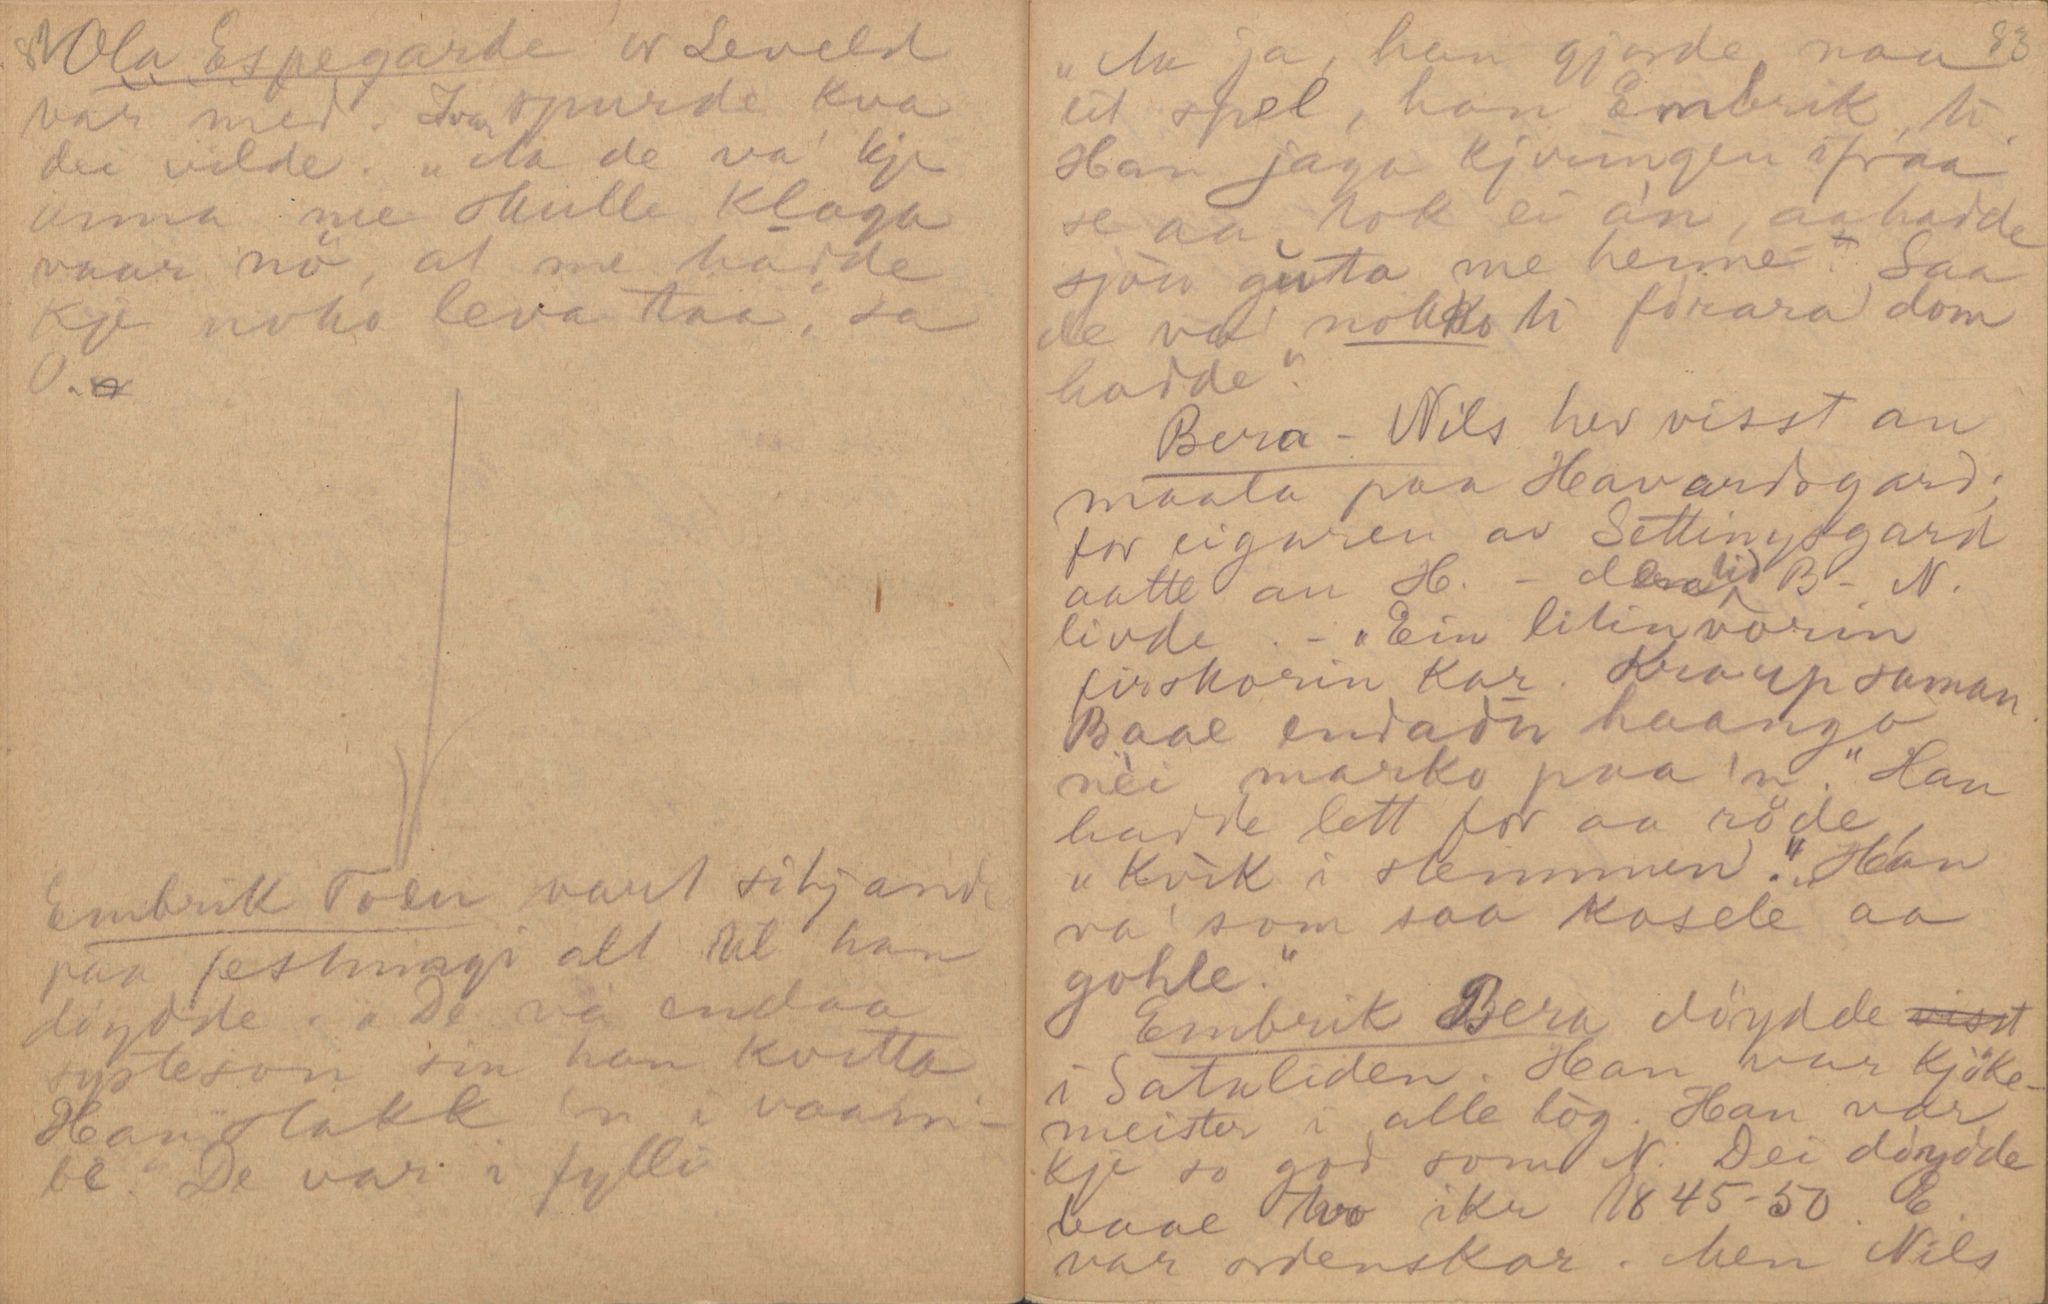 82 Ola Espegarde or Leveld
var med. Ivar spurde kva
dei vilde. „Aa de va' kje
anna me skulle klaga
vaar nö, at me hadde
kje noko leva taa", sa
O.
Embrik Toen vart sitjande
paa festningi alt til han
döydde. „De va endaa
systeson sin han kvitta
Han stakk 'n i
De var i fylli
83
„Aa ja, han gjorde naa
eit spel, han Embrik, ti
Han jaga kjvingen ifraa
se aa tok ei án, aa hadde
sjöu gutta me henne". Saa
de va nokko ti forara dom
hadde".
Bera-Nils hev visst an
maata paa Havardsgard;
for eigaren av Settingsgard
aatte an H. - den tid B-N.
livde. - „Ein litin vörin
firskorin kar. Kraup saman.
Baae endadn haango
nei marko paa 'n." Han
hadde lett for aa röde,
„Kvik i stemmen". „Han
va' som saa kosele aa
gohle."
Embrik Bera döydde visst
i Sataliden. Han var kjöke-
meister i alle lög. Han var
kje so god som N. Dei döydde
baae tvo ikr 1845-50. E.
var ordenskar. Men Nils